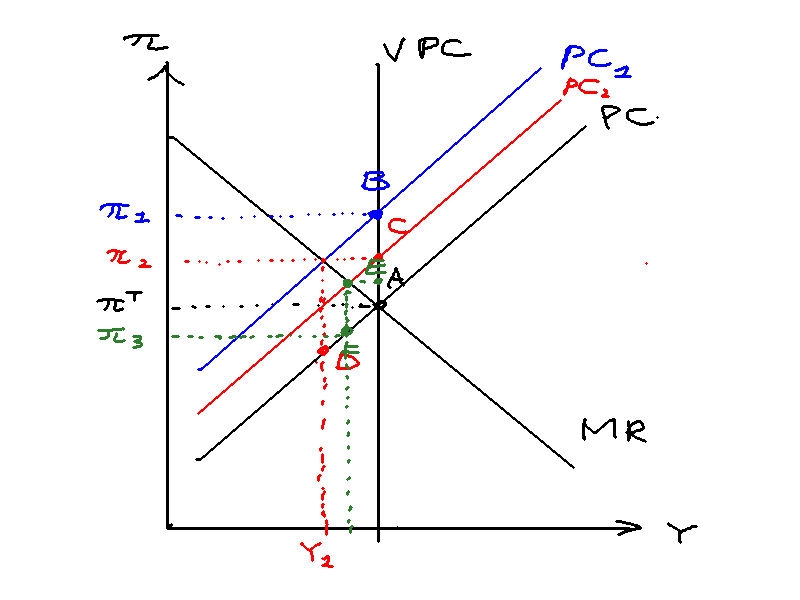 π
VPC
PC₁
PC₂
PC
B
π₁
C
π₂
E
A
πᵀ
π₃
E
D
MR
Y
Y₁